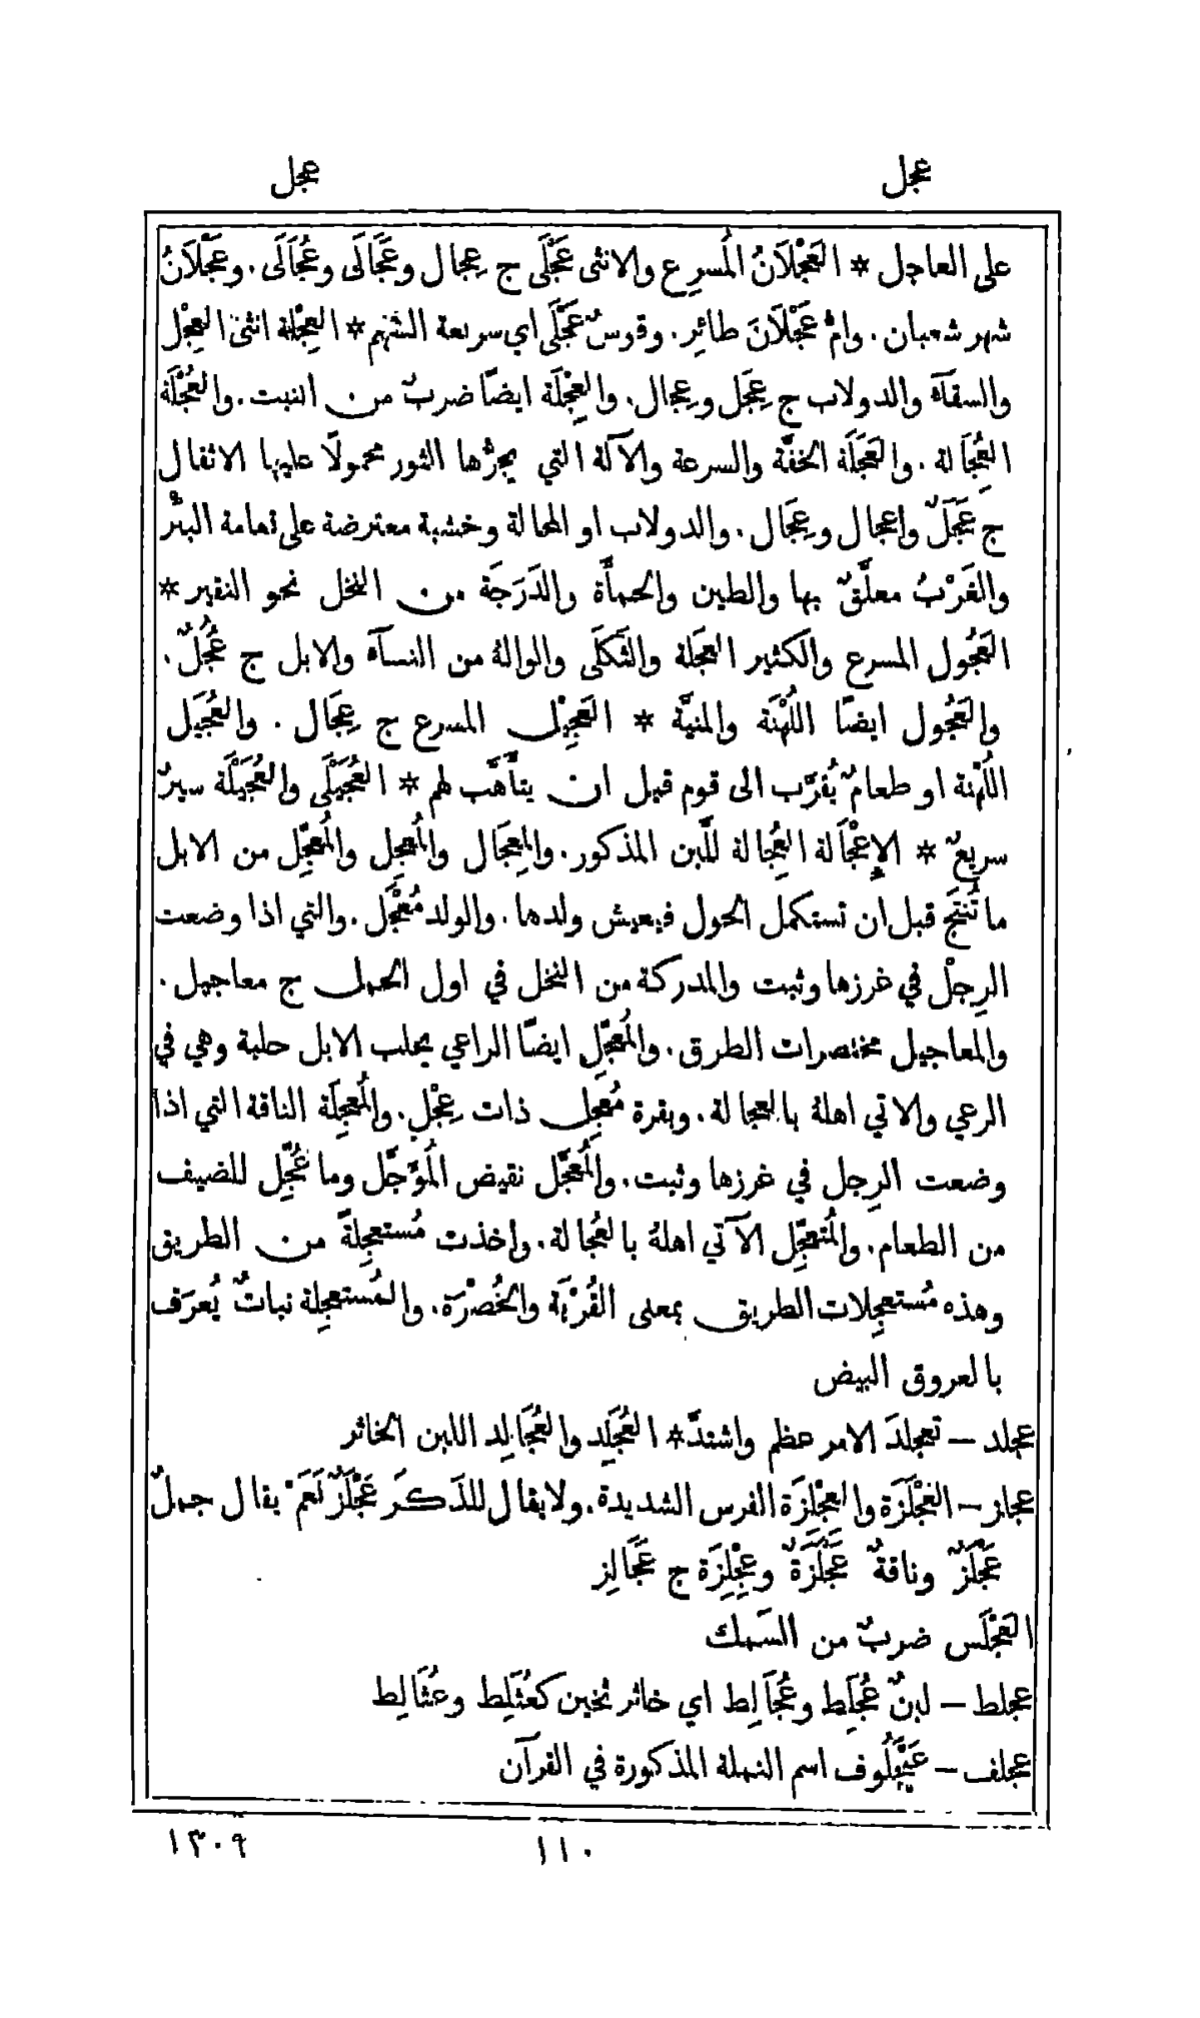 عجل
عجل
على العاجل * العَجْلَانُ المُسرِع والانثى عَجْلَى ج عِجَال وعَجَالَى وعُجَالَى. وعَجْلَانُ
شهر شعبان. وامُّ عَجْلَانَ طائِر. وقوسٌ عَجْلَى اي سريعة السَّهم * العِجْلة انثى العِجْل
والسقآء والدولاب ج عِجَل وعِجال. والعِجْلَة ايضًا ضربٌ من النبت. والعُجْلَة
العُِجَالة. والعَجَلَة الخفَّة والسرعة والآلة التي يجرُّها الثور محمولًا عليها الاثقال
ج عَجَلٌ واعجال وعِجَال. والدولاب او المحالة وخشبة معترضة على نعامة البئر
والغَرْبُ معلَّقٌ بها والطين والحمأَة والدَرَجَة من النخل نحو النقير *
العَجُول المسرع والكثير العجَلة والثَكلَى والوالهُ من النسآء والابل ج عُجُلٌ.
والعَجُول ايضًا اللُهْنَة والمنيَّة * العَجِيْل المسرع ج عِجَال. والعُجَيل
اللُهْنة او طعامٌ يُقرَّب الى قوم قبل ان يتأَهَّب لهم * العُجَيْلَى والعُجَيْلَة سيرٌ
سريعٌ * الإِعْجَالَة العُِجالة للَّبن المذكور. والمِعجَال والمُعجِل والمُعجِّل من الابل
ما تُنتَج قبل ان تستكمل الحول فيعيش ولدها. والولد مُعْجَل. والتي اذا وضعت
الرِجلْ في غرزها وثبت والمدركة من النخل في اول الحمل ج معاجيل.
والمعاجيل مختصرات الطرق. والمُعجِّل ايضًا الراعي يحلب الابل حلبة وهي في
الرعي والاتي اهلهُ بالعجالة. وبقرة مُعجِل ذات عِجْلٍ. والمُعجِلَة الناقة التي اذا
وضعت الرِجل في غرزها وثبت. والمُعجَّل نقيض المُؤَجَّل وما عُجِّل للضيف
من الطعام. والمُتعجِّل الآتي اهلهُ بالعُجالة. واخذت مُستعجِلةً من الطريق
وهذه مُستعجِلات الطريق بمعنى القُرْبَة والخُصْرَة. والمُستعجِلة نباتٌ يُعرَف
بالعروق البيض
عجلد — تعجلدَ الامر عظم واشتدَّ * العُجَلِد والعُجَالِد اللبن الخاثر
عجلز — العَجْلَزَة والعِجْلِزَة الفرس الشديدة. ولا يقال للذَكرَ عَجْلَزٌ نَعَمْ يقال جملٌ
عَجْلَزٌ وناقةٌ عَجْلَزَةٌ وعِجْلِزَة ج عَجَالِز
العَجْلَس ضربٌ من السَمك
عجلط — لبنٌ عُجَلِط وعُجَالِط اي خاثر ثخين كعُثَلِط وعُثَالِط
عجلف — عَيْجَلُوف اسم النملة المذكورة في القرآن
١١٠
١٣٠٩